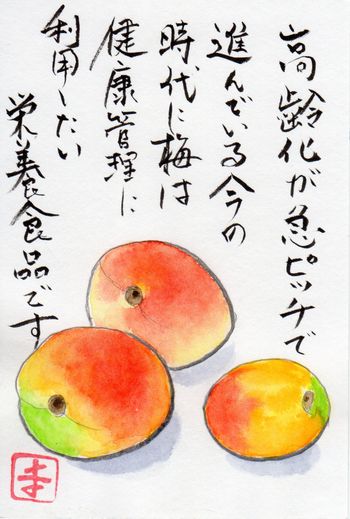 高齢化が急ピッチで
進んでいる今の
時代に梅は
健康管理に
利用したい
栄養食品です